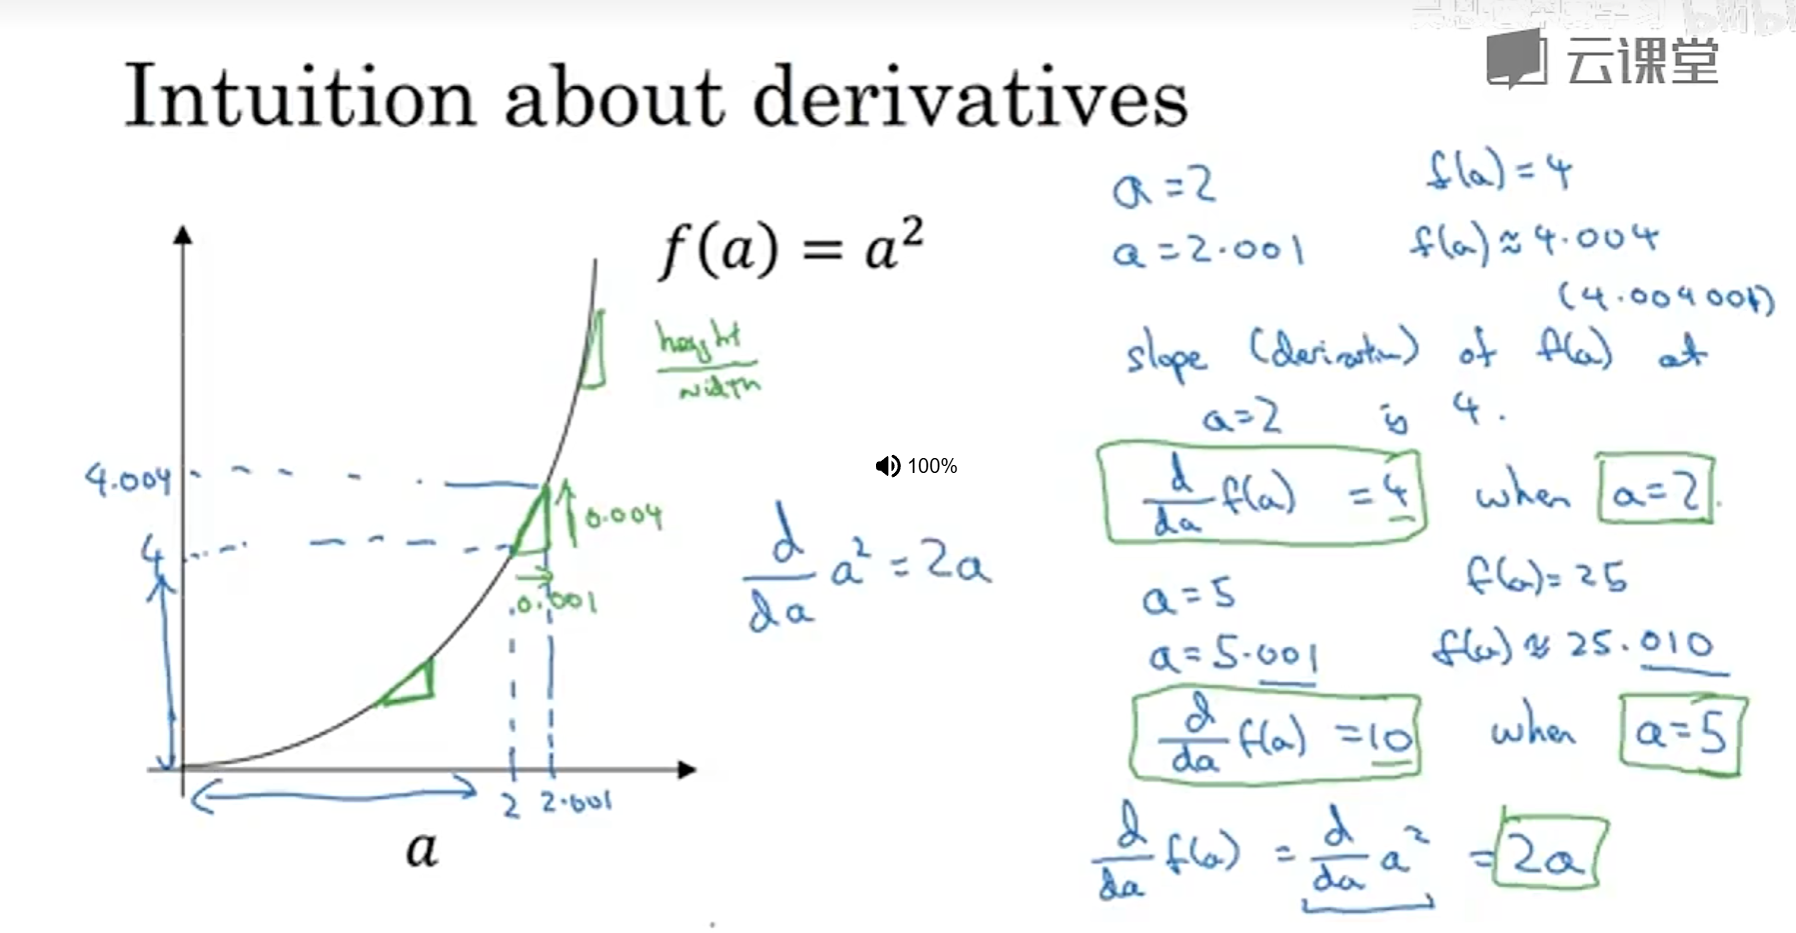 云课堂
Intuition about derivatives
f(a) = a²
height
width
4.004
4
0.004
0.001
2 2.001
a
100%
d/da a² = 2a
a = 2 f(a) = 4
a = 2.001 f(a) ≈ 4.004
(4.004001)
slope (derivative) of f(a) at
a=2 is 4.
d/da f(a) = 4 when a=2.
a = 5 f(a) = 25
a = 5.001 f(a) ≈ 25.010
d/da f(a) = 10 when a=5
d/da f(a) = d/da a² = 2a